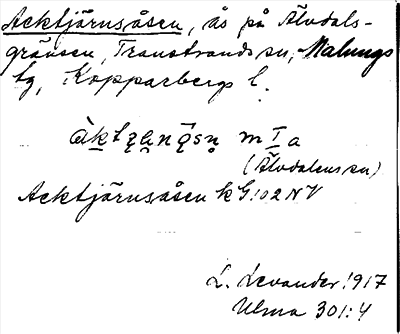 Acktjärnsåsen, ås på Älvdals-
gränsen, Transtrands sn, Malungs
tg, Kopparbergs l.
m I a
(Älvdalens sn)
Acktjärnsåsen k G!02NV
L. Levander 1917
Ulma 301:4